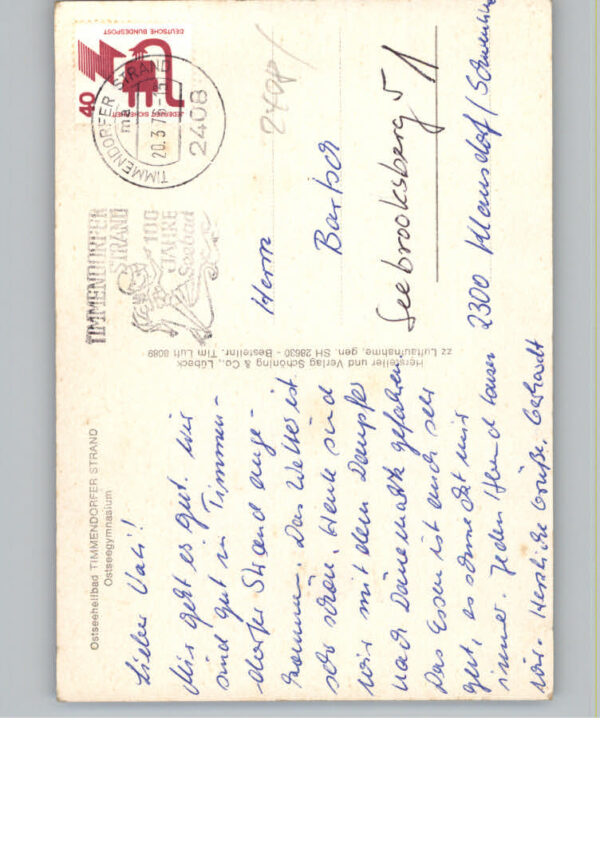 Ostseeheilbad TIMMENDORFER STRAND
Ostseegymnasium
Lieber Vati!
Mir geht es gut. Wir
sind gut in Timmen-
dorfer Strand ange-
kommen. Das Wetter ist
sehr schön. Heute sind
wir mit dem Dampfer
nach Dänemark gefahren
Das Essen ist auch sehr
gut, es schmeckt mir
immer. Jeden Abend
wir. Herzliche Grüße
Hersteller und Verlag Schöning & Co., Lübeck
zz Luftaufnahme, gen. SH 28630 - Bestellnr. Tim Luft 8089
TIMMENDORFER
STRAND
100
JAHRE
Seebad
TIMMENDORFER STRAND
ma
20.3.75
2408
TIMMENDORFER STRAND
DEUTSCHE BUNDESPOST
JEDERZEIT SICHERHEIT
40
2408
Herrn
Bartsch
Seebrooksberg 5
2300 Klausdorf/Schwentine